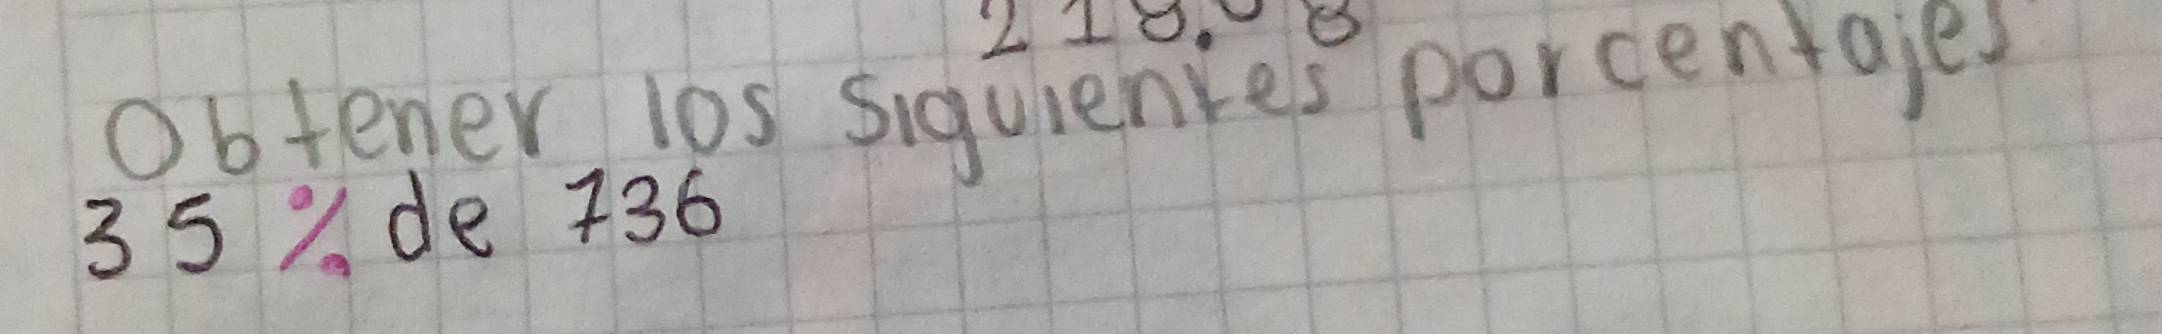 Obtener los siguientes porcentajes
35% de 736